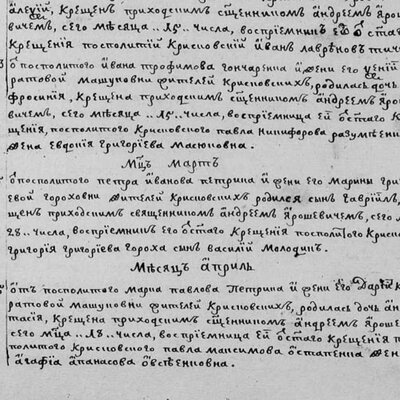 алеѯій, крещенъ приходскимъ сщенникомъ андреемъ ярош
вичемъ, сего мѣсяца числа, воспріемникъ его ѿ ста
крещенія посполитій крисковскій иванъ лавреновъ
ѿ посполитого ивана трофимова гончаренка и жени его
ратовой машуповни жителей крисковскихъ, родилась дочь
фросинія, крещена приходскимъ сщенникомъ андреемъ яро
вичемъ, сего мѣсяца числа, воспріемница ей ѿ стаго к
щенія, посполитого крисковского павла никифорова
жена евдокія григоріева масюповна.
мцъ мартъ
ѿ посполитого петра иванова петрина и жени его марини григ
евой гороховни жителей крисковскихъ родился сынъ гавріилъ,
щенъ приходскимъ священникомъ андреемъ ярошевичемъ, сего м
числа, воспріемникъ его ѿ стаго крещенія посполитого криско
григорія григоріева гороха сынъ василій молодикъ.
мѣсяцъ априль
ѿтъ посполитого марка павлова петрина и жени его дарѣи к
ратовой машуповни жителей крисковскихъ, родилась дочь ан
тасія, крещена приходскимъ сщенникомъ андреемъ яроше
сего мца числа, воспріемница ей ѿ стаго крещенія п
политого крисковского павла максимова остапенка жен
агафія апанасова овсѣенковна.